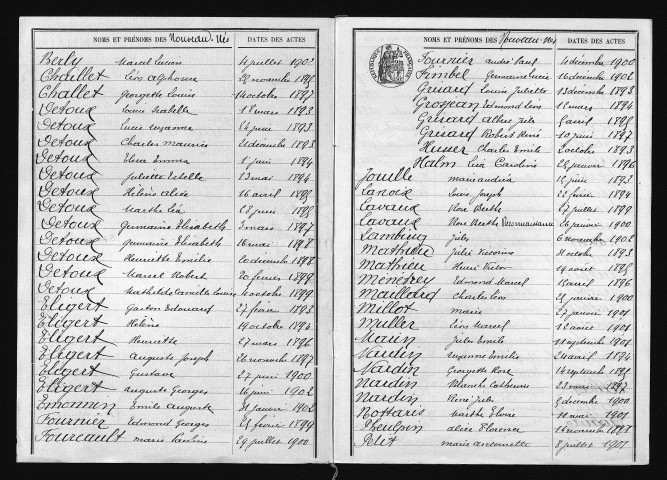 NOMS ET PRÉNOMS DES Nouveau-Nés DATES DES ACTES
Berly Marcel Lucien 4 juillet 1902
Chaillet Léon Alphonse 29 novembre 1895
Challet Georgette Louise 14 octobre 1897
Detoux Louise Isabelle 18 mars 1893
Detoux Lucie Suzanne 24 juin 1893
Detoux Charles Maurice 21 décembre 1893
Detoux Elisa Emma 1 juin 1894
Detoux Juliette Estelle 23 mai 1894
Detoux Hélène Alice 16 avril 1895
Detoux Marthe Léa 28 juin 1895
Detoux Germaine Elisabeth 3 mars 1897
Detoux Germaine Elisabeth 16 mai 1898
Detoux Henriette Emilie 20 décembre 1898
Detoux Marcel Robert 20 février 1899
Detoux Mathilde Camille Louise 4 octobre 1899
Eligert Gaston Edouard 27 février 1893
Eligert Hélène 19 octobre 1894
Eligert Henriette 27 mars 1896
Eligert Auguste Joseph 26 novembre 1897
Eligert Gustave 27 juin 1900
Eligert Auguste Georges 16 juin 1902
Emonnin Emile Auguste 31 janvier 1902
Fournier Edmond Georges 25 février 1899
Fourcault Marie Pauline 29 juillet 1900
NOMS ET PRÉNOMS DES Nouveau-Nés DATES DES ACTES
Fournier André Paul 4 décembre 1900
Fimbel Germaine Lucie 16 décembre 1902
Girard Louise Juliette 13 décembre 1893
Grosjean Edmond Léon 12 mars 1894
Girard Albert Jules 5 avril 1895
Girard Robert René 10 juin 1897
Husser Charles Emile 2 octobre 1893
Halm Léa Caroline 25 janvier 1896
Jouille Marie Andréa 15 juin 1893
Lanoix Louis Joseph 22 février 1894
Lavaux Rose Berthe 27 juillet 1899
Lavaux Rose Berthe Reconnaissance 26 janvier 1900
Lambing Jules 6 novembre 1902
Mathieu Julie Victorine 31 octobre 1893
Mathieu Henri Victor 19 août 1895
Menétrey Edmond Marcel 15 avril 1896
Maillard Charles Léon 21 janvier 1900
Millot Marie 27 janvier 1901
Muller Léon Marcel 12 avril 1901
Jules Emile 11 septembre 1901
Suzanne Emilie 21 avril 1894
Nardin Georgette Rose 14 septembre 1895
Nardin Blanche Catherine 23 mai 1897
Nardin René Jules 5 décembre 1900
Nottaris Marthe Elvire 11 mai 1901
Alice Florence 16 novembre 1898
Petit Marie Antoinette 8 juillet 1901